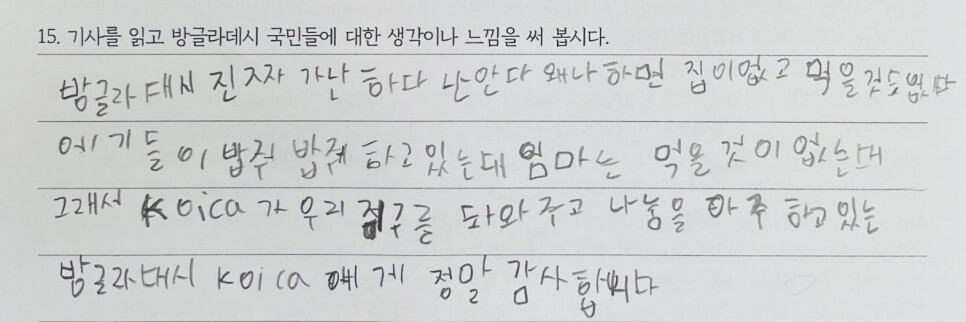 15. 기사를 읽고 방글라데시 국민들에 대한 생각이나 느낌을 써 봅시다.
방글라대시 진자자 가난 하다 난안다 왜나 하면 집이없고 먹을것도없다
에기들이 밥줘 밥줘 하고있는대 엄마는 먹을 것이 없는대
그래서 Koica가 우리 지구를 도와주고 나눔을 아주 하고있는
방글라대시 Koica 에게 정말 감사합니다